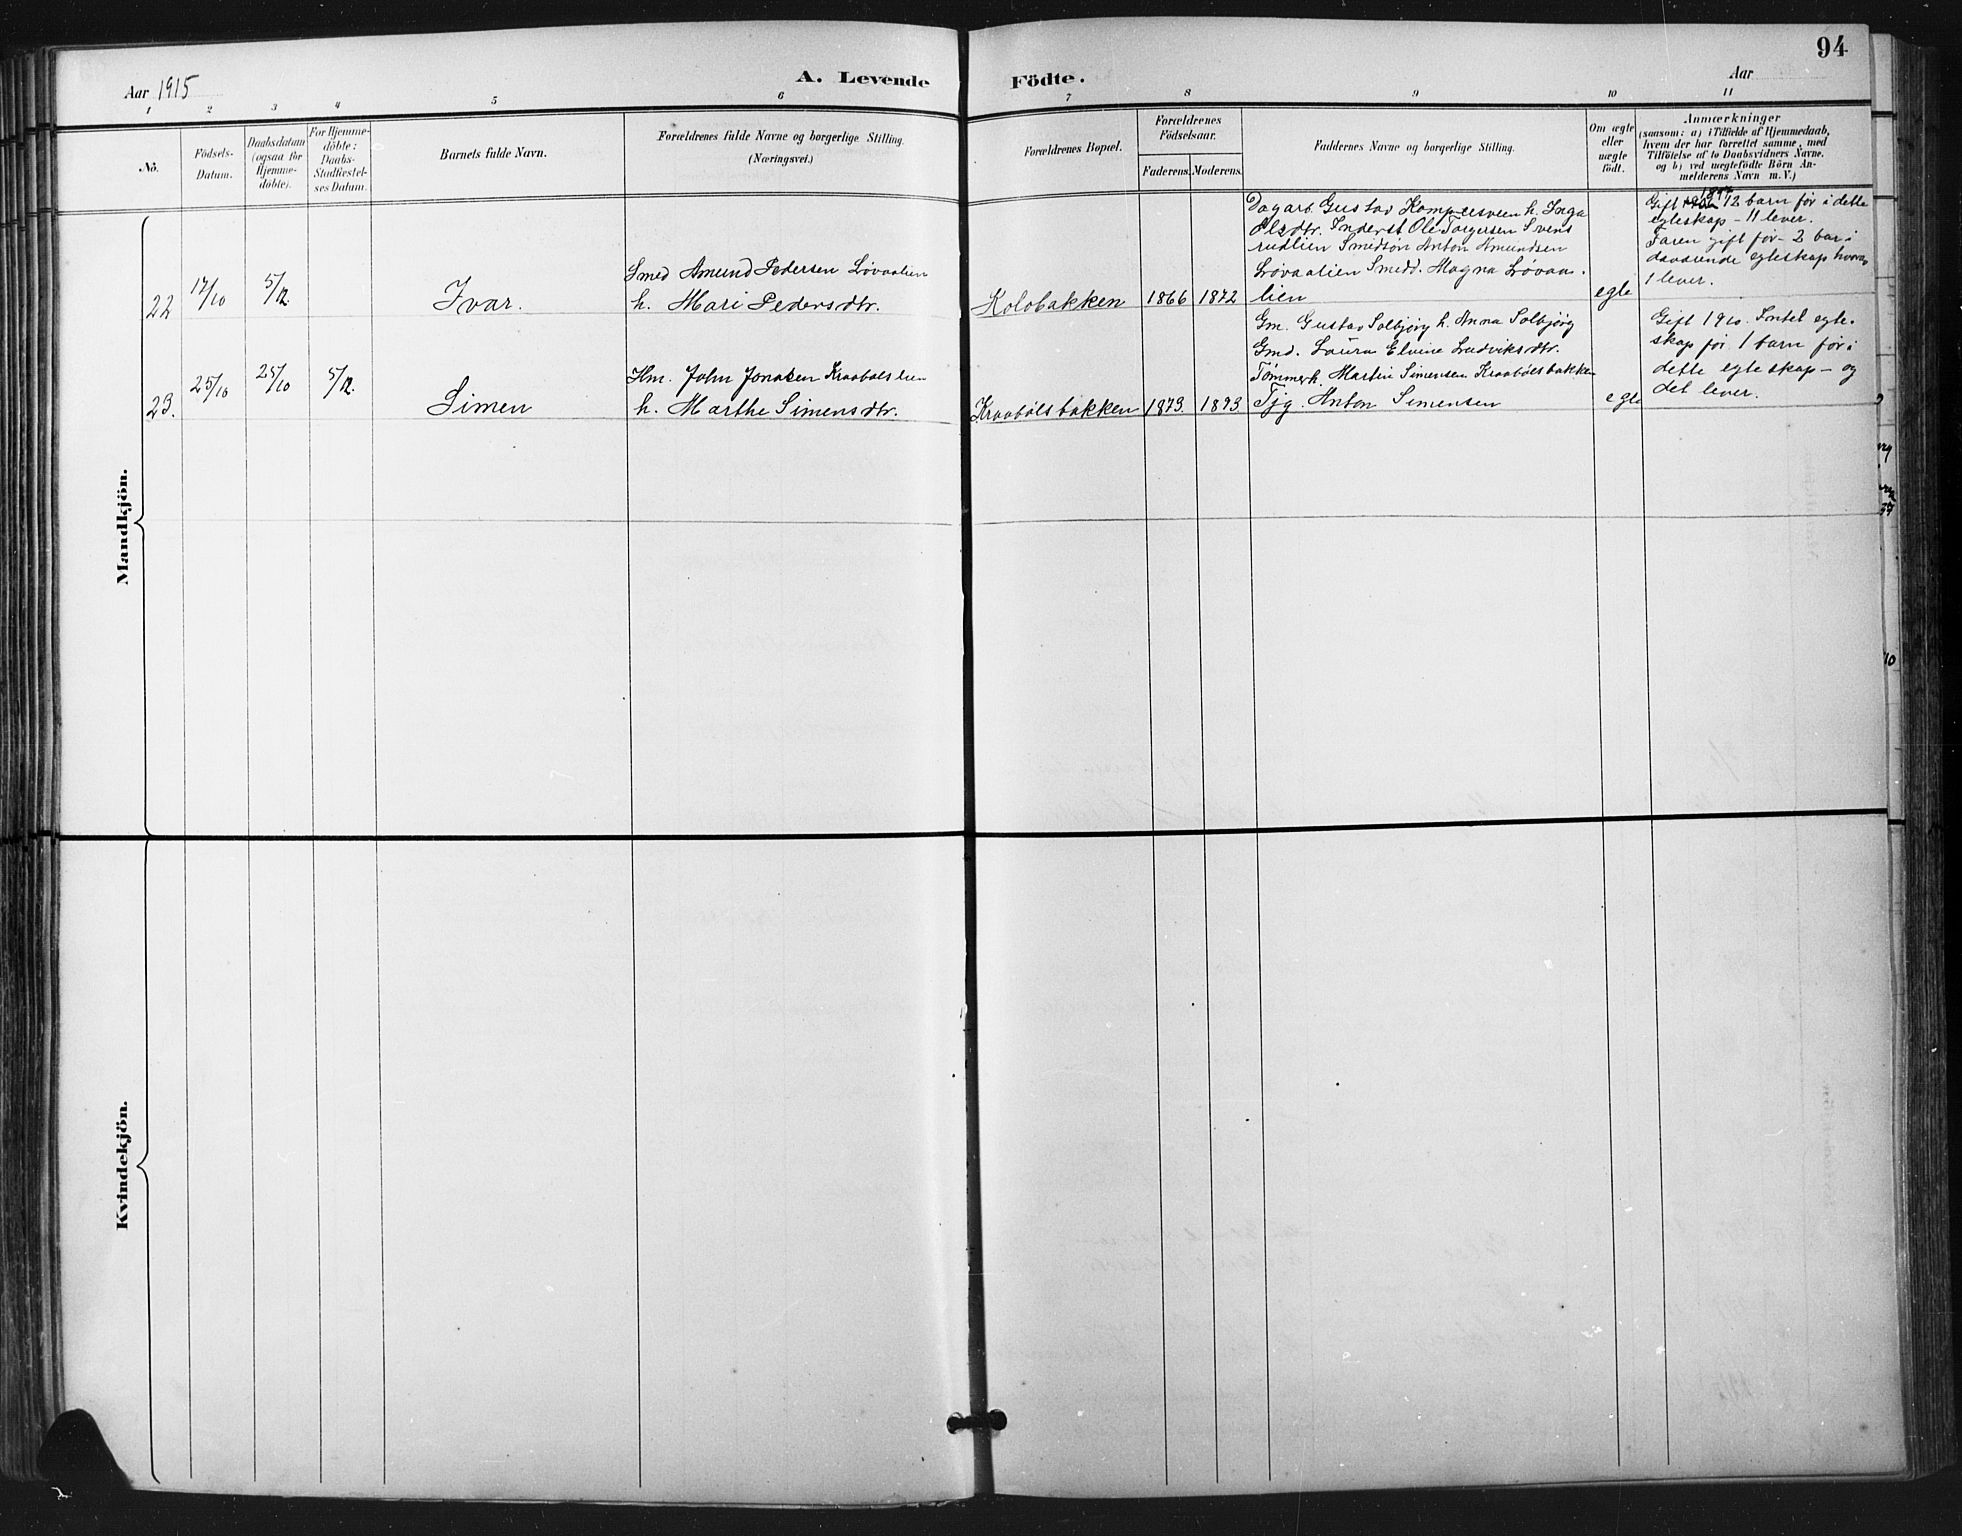 94
Aar 1915
A. Levende
Födte.
Aar
1 2 3 4 5 6 7 8 9 10 11
No.
Födsels-
Datum.
Daabsdatum
(ogsaa for
Hjemme-
döbte).
For Hjemme-
döbte:
Daabs-
Stadfæstel-
ses Datum.
Barnets fulde Navn.
Forældrenes fulde Navne og borgerlige Stilling.
(Næringsvei.)
Forældrenes Bopæl.
Forældrenes
Födselsaar.
Faderens.
Moderens.
Faddernes Navne og borgerlige Stilling.
Om ægte
eller
uægte
födt.
Anmærkninger
(saasom: a) i Tilfælde af Hjemmedaab,
hvem der har forrettet samme, med
Tilföielse af to Daabsvidners Navne,
og b) ved uægtefödte Börn An-
melderens Navn m. V.)
Mandkjön.
22
17/10
5/12.
Ivar.
Smed Amund Pedersen Løvaalien
h. Mari Pedersdtr.
Kolobakken
1866
1872
Dagarb. Gustav Kampesveen h. Inga
Olsdtr. Inderst Ole Torgersen Svens
rudlien Smedsøn Anton Amundsen
Løvaalien Smedd. Magna Løvaa-
lien
egte
Gift 1897 12 barn før i dette
egteskap - 11 lever.
Faren gift før - 2 bar i
daværende egteskap hvorav
1 lever.
23.
25/10
25/10
5/12.
Simen
Hm. John Jonasen Kraabølslien
h. Marthe Simensdtr.
Kraabølsbakken
1873
1873
Gm. Gustav Solbjørg h. Anna Solbjørg
Gmd. Laura Elvine Ludviksdtr.
Tømmerh. Martin Simensen Kraabølsbakken
Tjg. Anton Simensen
egte
Gift 1910. Intet egte-
skap før 1 barn før i
dette egteskap - og
det lever.
Kvindekjön.